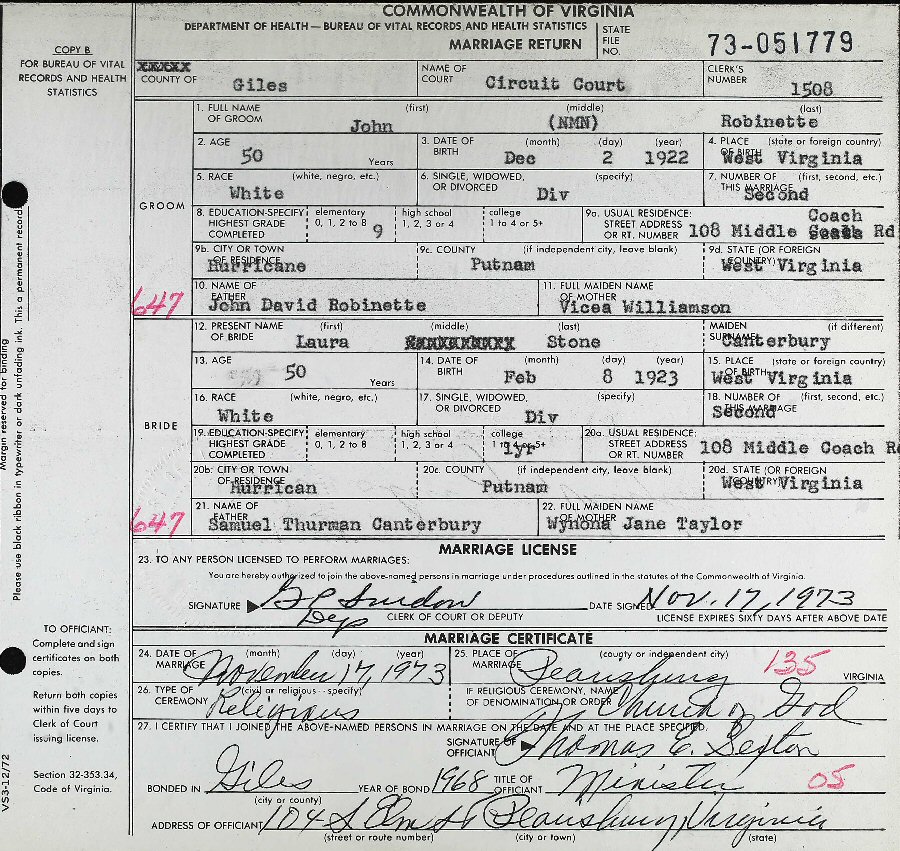 COMMONWEALTH OF VIRGINIA
DEPARTMENT OF HEALTH — BUREAU OF VITAL RECORDS AND HEALTH STATISTICS
MARRIAGE RETURN
STATE FILE NO. 73-051779
COPY B
FOR BUREAU OF VITAL
RECORDS AND HEALTH
STATISTICS
COUNTY OF Giles
NAME OF COURT Circuit Court
CLERK'S NUMBER 1508
GROOM
1. FULL NAME OF GROOM (first) John (middle) (NMN) (last) Robinette
2. AGE 50 Years
3. DATE OF BIRTH (month) Dec (day) 2 (year) 1922
4. PLACE OF BIRTH (state or foreign country) West Virginia
5. RACE (white, negro, etc.) White
6. SINGLE, WIDOWED, OR DIVORCED (specify) Div
7. NUMBER OF THIS MARRIAGE (first, second, etc.) Second
8. EDUCATION-SPECIFY HIGHEST GRADE COMPLETED elementary 0, 1, 2 to 8 9 high school 1, 2, 3 or 4 college 1 to 4 or 5+
9a. USUAL RESIDENCE: STREET ADDRESS OR RT. NUMBER 108 Middle Coach Rd
9b. CITY OR TOWN OF RESIDENCE Hurricane
9c. COUNTY (if independent city, leave blank) Putnam
9d. STATE (OR FOREIGN COUNTRY) West Virginia
10. NAME OF FATHER John David Robinette
11. FULL MAIDEN NAME OF MOTHER Vicea Williamson
647
BRIDE
12. PRESENT NAME OF BRIDE (first) Laura (middle) (last) Stone
MAIDEN SURNAME (if different) Canterbury
13. AGE 50 Years
14. DATE OF BIRTH (month) Feb (day) 8 (year) 1923
15. PLACE OF BIRTH (state or foreign country) West Virginia
16. RACE (white, negro, etc.) White
17. SINGLE, WIDOWED, OR DIVORCED (specify) Div
18. NUMBER OF THIS MARRIAGE (first, second, etc.) Second
19. EDUCATION-SPECIFY HIGHEST GRADE COMPLETED elementary 0, 1, 2 to 8 high school 1, 2, 3 or 4 college 1 to 4 or 5+ 1yr
20a. USUAL RESIDENCE: STREET ADDRESS OR RT. NUMBER 108 Middle Coach Rd
20b. CITY OR TOWN OF RESIDENCE Hurrican
20c. COUNTY (if independent city, leave blank) Putnam
20d. STATE (OR FOREIGN COUNTRY) West Virginia
21. NAME OF FATHER Samuel Thurman Canterbury
22. FULL MAIDEN NAME OF MOTHER Wynona Jane Taylor
647
MARRIAGE LICENSE
23. TO ANY PERSON LICENSED TO PERFORM MARRIAGES:
You are hereby authorized to join the above-named persons in marriage under procedures outlined in the statutes of the Commonwealth of Virginia.
SIGNATURE Dep CLERK OF COURT OR DEPUTY
DATE SIGNED Nov. 17, 1973
LICENSE EXPIRES SIXTY DAYS AFTER ABOVE DATE
MARRIAGE CERTIFICATE
24. DATE OF MARRIAGE (month) (day) (year) November 17, 1973
25. PLACE OF MARRIAGE (county or independent city) Pearisburg 135 VIRGINIA
26. TYPE OF CEREMONY (civil or religious - specify) Religious
IF RELIGIOUS CEREMONY, NAME OF DENOMINATION OR ORDER Church of God
27. I CERTIFY THAT I JOINED THE ABOVE-NAMED PERSONS IN MARRIAGE ON THE DATE AND AT THE PLACE SPECIFIED.
SIGNATURE OF OFFICIANT Thomas E. Sexton
BONDED IN Giles (city or county)
YEAR OF BOND 1968
TITLE OF OFFICIANT Minister 05
ADDRESS OF OFFICIANT 104 S Elm St Pearisburg, Virginia
(street or route number) (city or town) (state)
Margin reserved for binding
Please use black ribbon in typewriter or dark unfading ink. This a permanent record
TO OFFICIANT:
Complete and sign
certificates on both
copies.
Return both copies
within five days to
Clerk of Court
issuing license.
Section 32-353.34,
Code of Virginia.
VS3-12/72